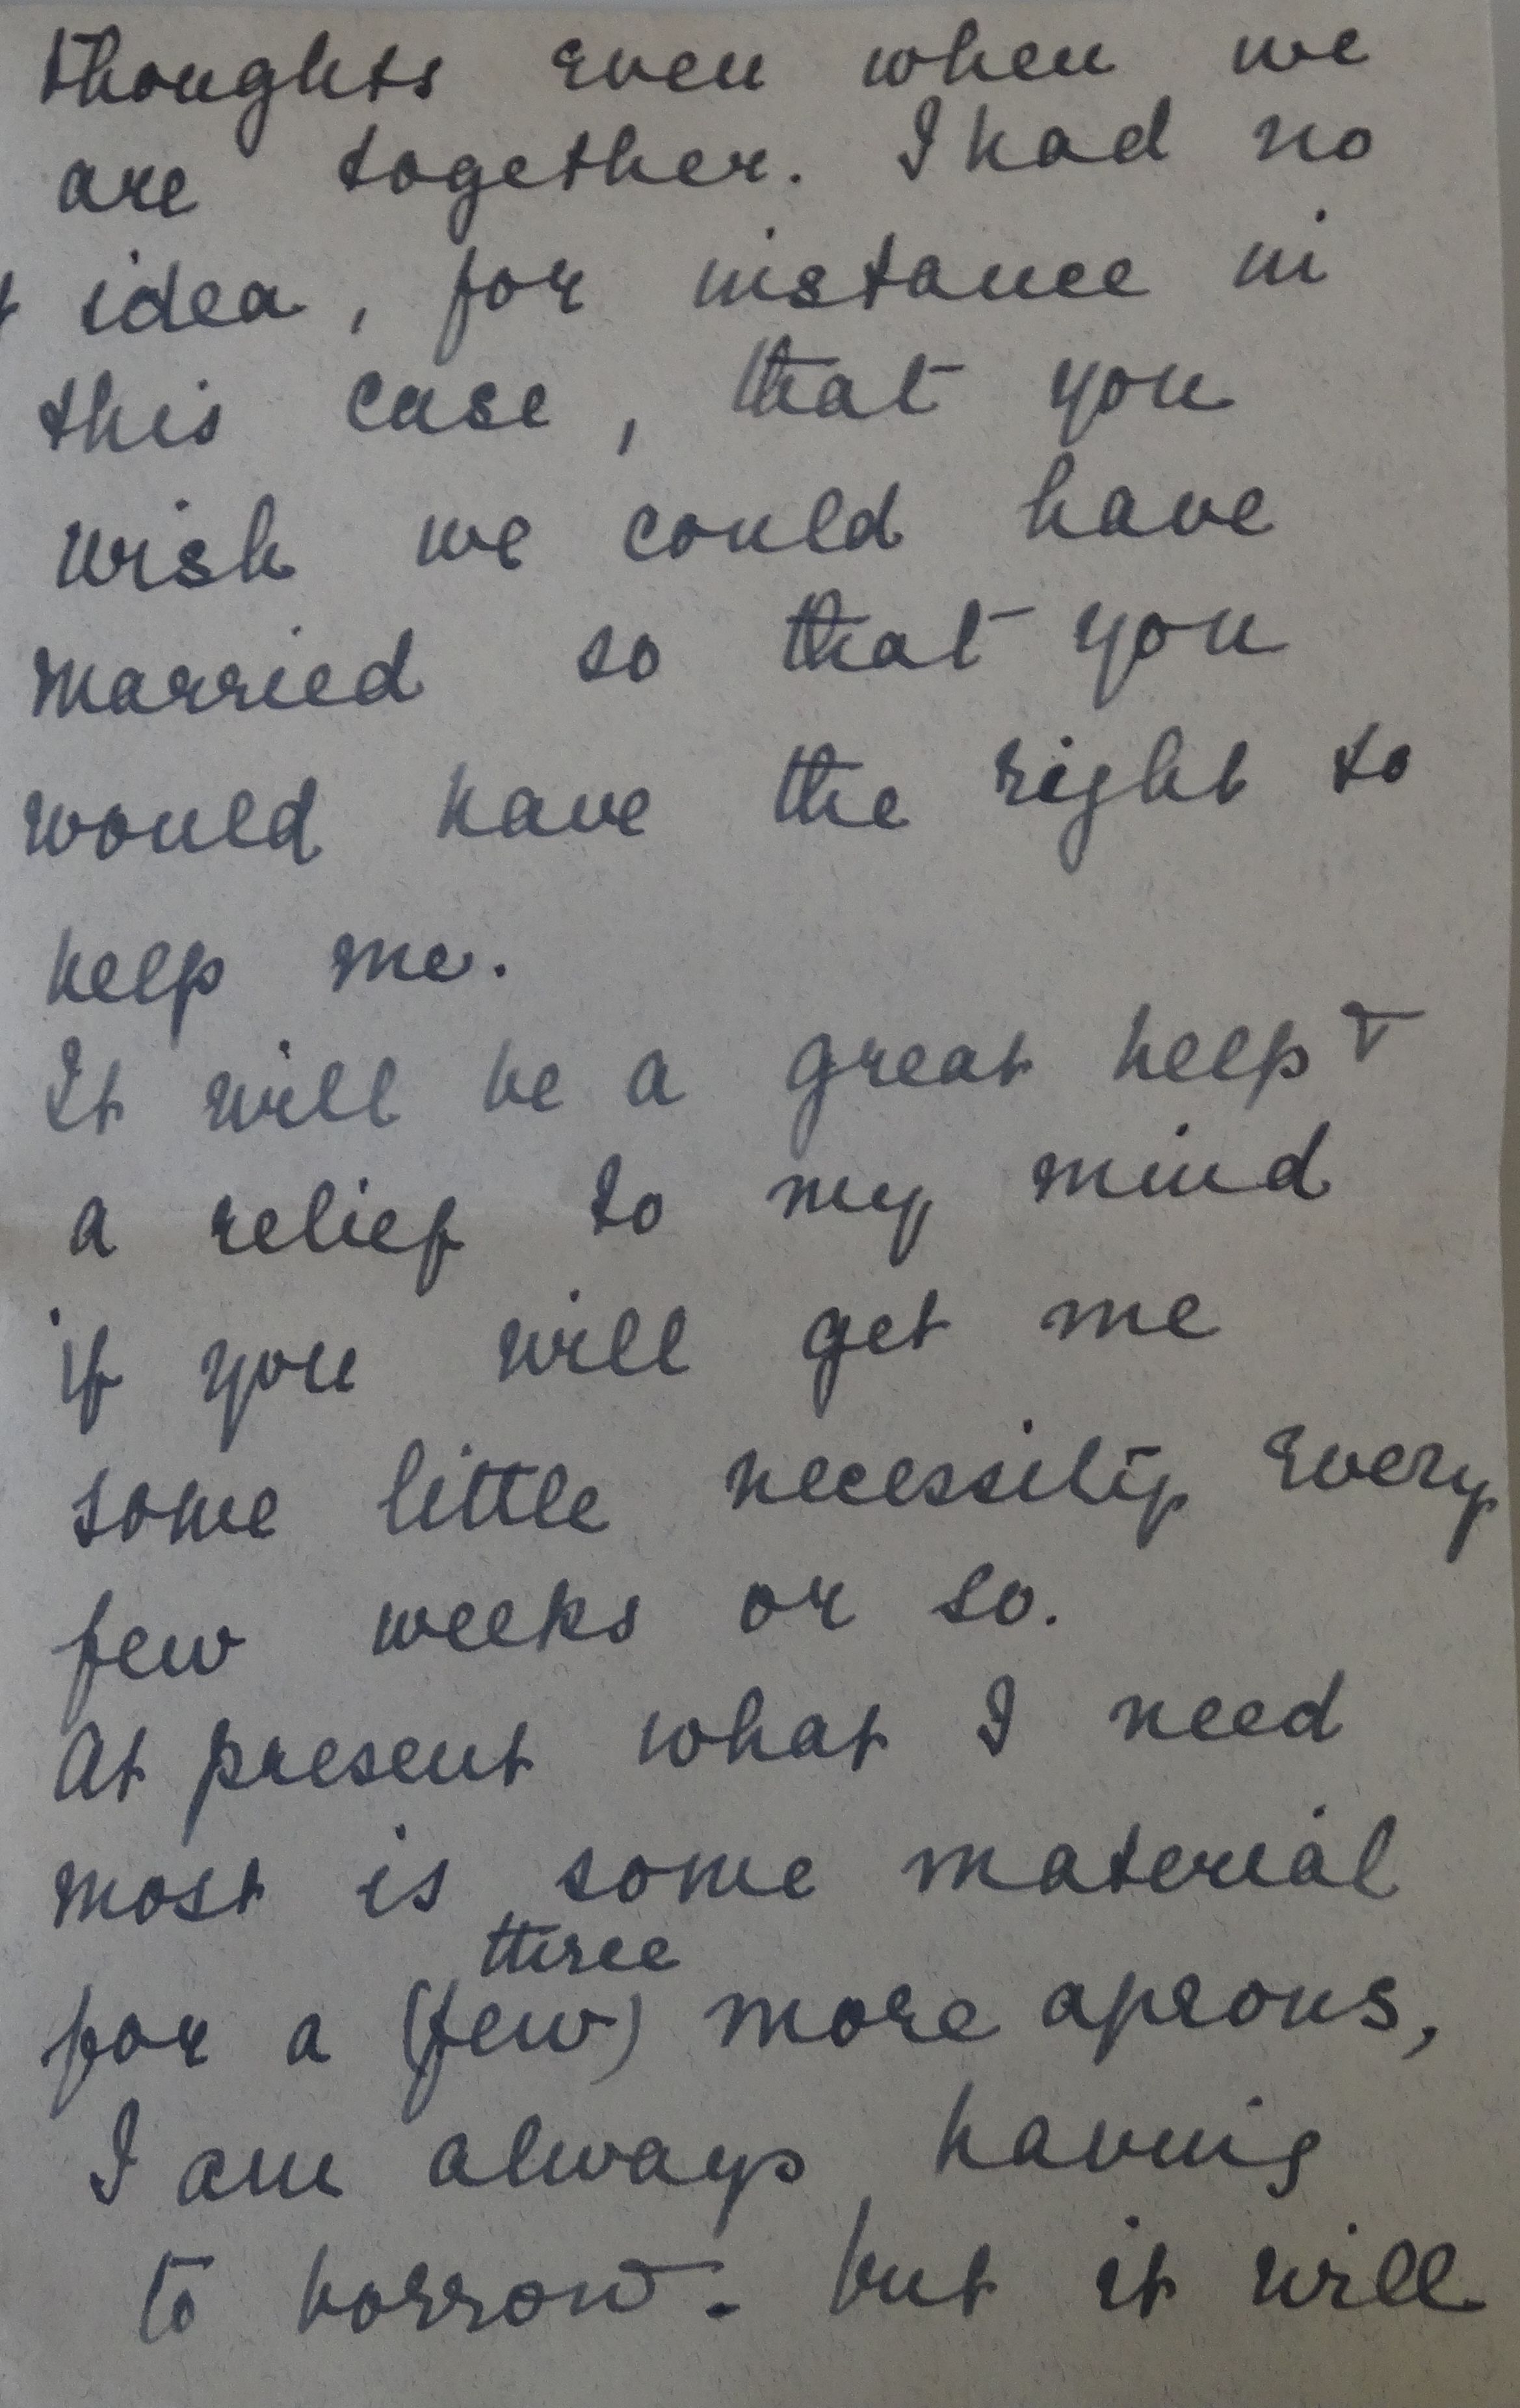 thoughts even when we
are together. I had no
idea, for instance in
this case, that you
wish we could have
married so that you
would have the right to
help me.
It will be a great help &
a relief to my mind
if you will get me
some little necessity every
few weeks or so.
At present what I need
most is some material
three
for a (few) more aprons,
I am always having
to borrow - but it will